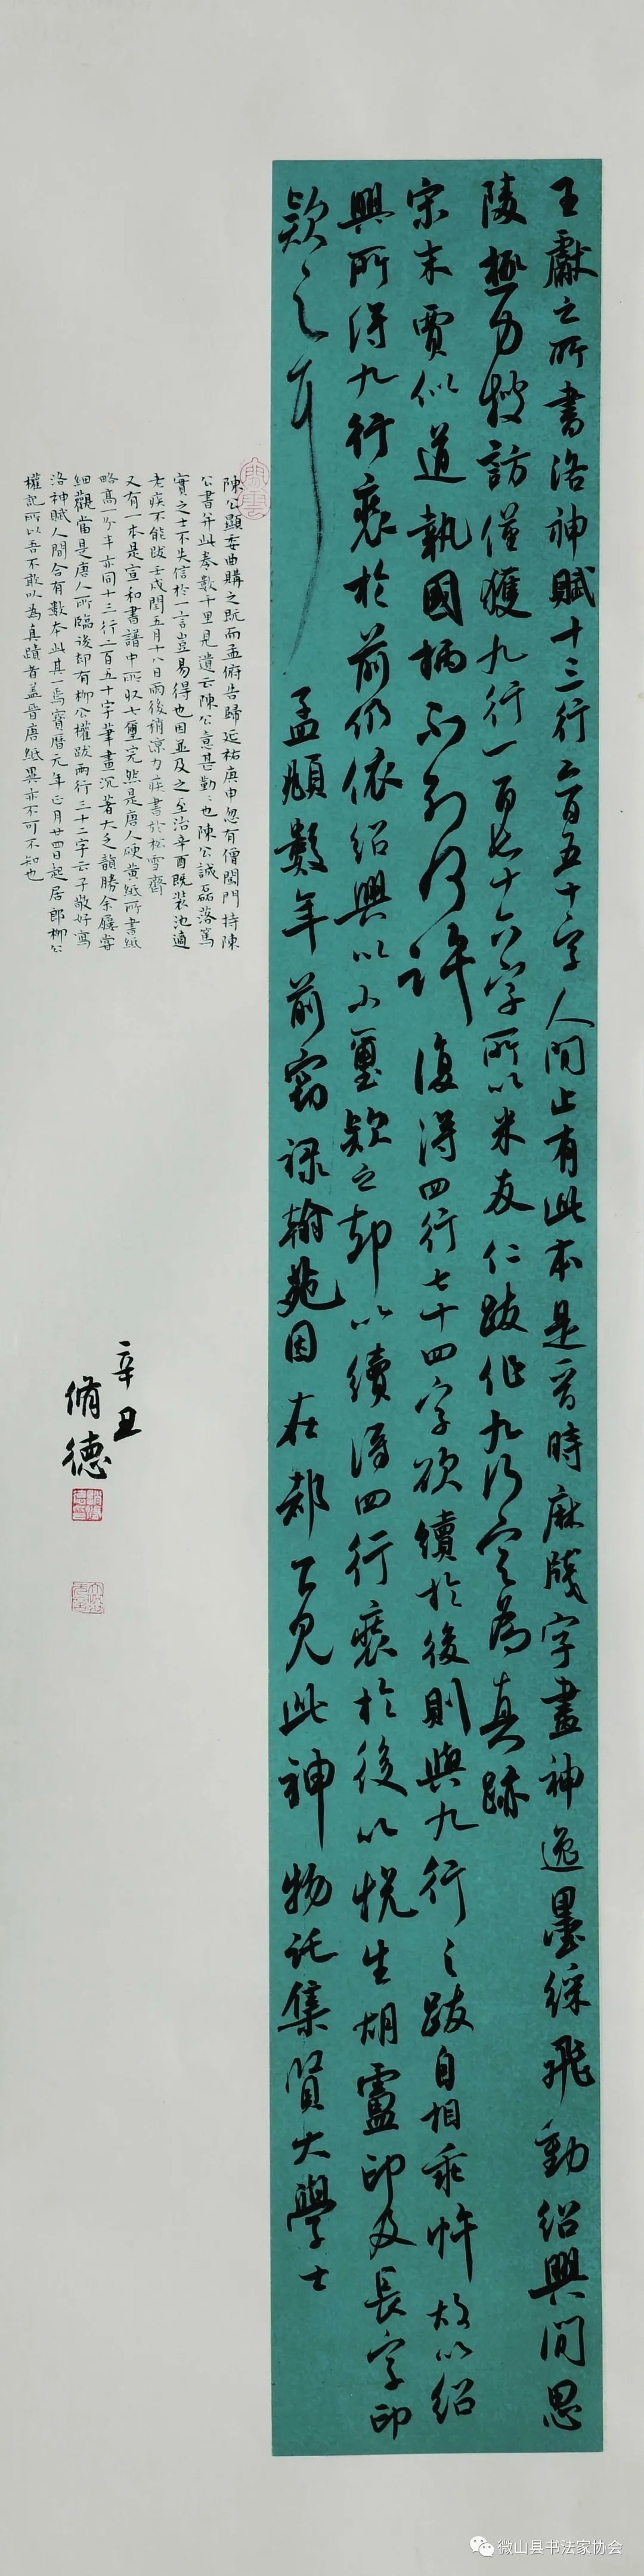 王獻之所書洛神賦十三行二百五十字人間止有此本是晉時麻牋字畫神逸墨綵飛動紹興間思
陵極力搜訪僅獲九行一百七十六字所以米友仁跋作九行定為真跡
宋末賈似道執國柄不知何許復得四行七十四字欲續於後則與九行之跋自相乖忤故以紹
興所得九行裝於前仍依紹興以小璽款之却以續得四行裝於後以悅生胡盧印及長字印
款之耳
孟頫數年前竊祿翰苑因在都下見此神物託集賢大學士
陳公顥委曲購之既而孟俯告歸延祐庚申忽有僧闖門持陳
公書并此卷數千里見遺云陳公意甚勤勤也陳公誠磊落篤
實之士不失信於一言豈易得也因並及之至治辛酉既裝池適
老疾不能跋壬戌閏五月十八日雨後稍涼力疾書於松雪齋
又有一本是宣和書譜中所收七璽完然是唐人硬黃紙所書紙
略高一分半亦同十三行二百五十字筆畫沉著大乏韻勝余屢嘗
細觀當是唐人所臨後却有柳公權跋兩行三十二字云子敬好寫
洛神賦人間合有數本此其一焉寶曆元年正月廿四日起居郎柳公
權記所以吾不敢以為真蹟者蓋晉唐紙異亦不可不知也
辛丑
脩德
微山县书法家协会